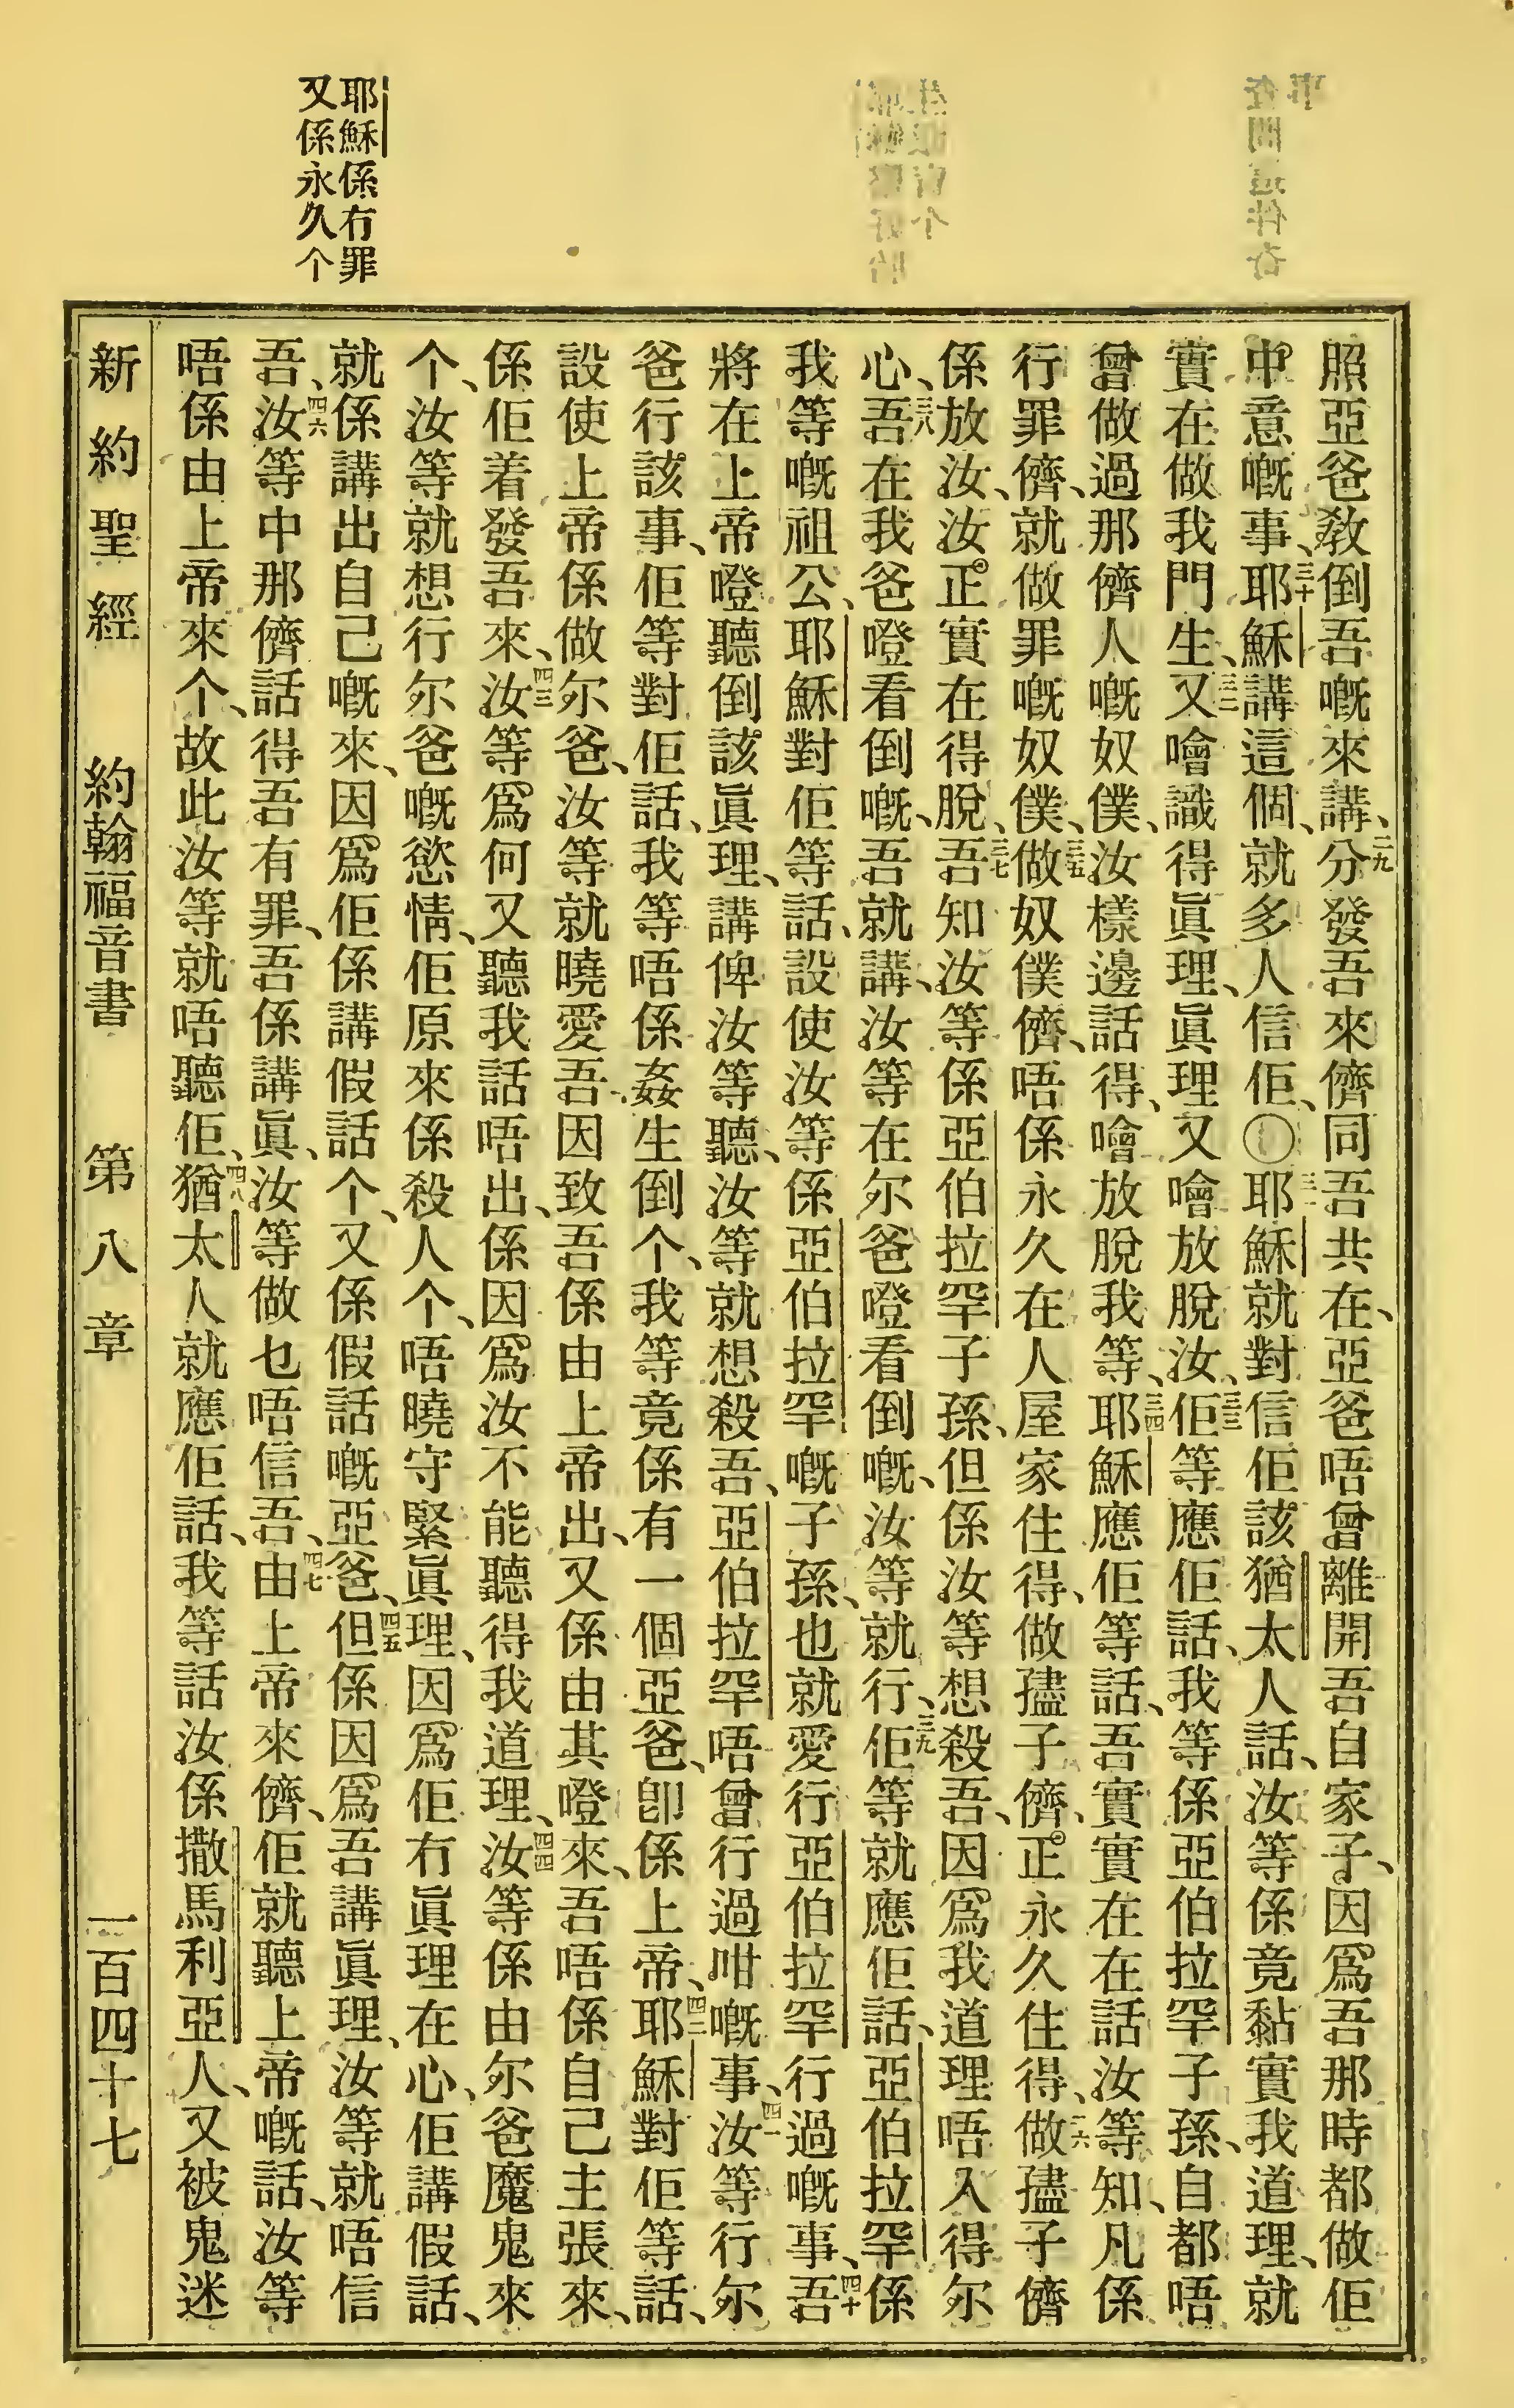 耶穌係冇罪
又係永久个
照亞爸教倒吾嘅來講、二九分發吾來儕同吾共在、亞爸唔曾離開吾自家子、因爲吾那時都做佢
中意嘅事、三十耶穌講這個、就多人信佢、〇三一耶穌就對信佢該猶太人話、汝等係竟黏實我道理、就
實在做我門生、三二又噲識得眞理、眞理又噲放脫汝、三三佢等應佢話、我等係亞伯拉罕子孫、自都唔
曾做過那儕人嘅奴僕、汝樣邊話得、噲放脫我等、三四耶穌應佢等話、吾實實在在話汝等知、凡係
行罪儕、就做罪嘅奴僕、三五做奴僕儕、唔係永久在人屋家住得、做孻子儕、正永久住得、三六做孻子儕
係放汝、汝正實在得脫、三七吾知汝等係亞伯拉罕子孫、但係汝等想殺吾、因爲我道理唔入得尔
心、三八吾在我爸嶝看倒嘅、吾就講、汝等在尔爸嶝看倒嘅、汝等就行、三九佢等就應佢話、亞伯拉罕係
我等嘅祖公、耶穌對佢等話、設使汝等係亞伯拉罕嘅子孫、也就愛行亞伯拉罕行過嘅事、四十吾
將在上帝嶝聽倒該眞理、講俾汝等聽、汝等就想殺吾、亞伯拉罕唔曾行過咁嘅事、四一汝等行尔
爸行該事、佢等對佢話、我等唔係姦生倒个、我等竟係有一個亞爸、卽係上帝、四二耶穌對佢等話、
設使上帝係做尔爸、汝等就曉愛吾、因致吾係由上帝出、又係由其嶝來、吾唔係自己主張來、
係佢着發吾來、四三汝等爲何又聽我話唔出、係因爲汝不能聽得我道理、四四汝等係由尔爸魔鬼來
个、汝等就想行尔爸嘅慾情、佢原來係殺人个、唔曉守緊眞理、因爲佢冇眞理在心、佢講假話、
就係講出自己嘅來、因爲佢係講假話个、又係假話嘅亞爸、四五但係因爲吾講眞理、汝等就唔信
吾、四六汝等中那儕話得吾有罪、吾係講眞、汝等做乜唔信吾、四七由上帝來儕、佢就聽上帝嘅話、汝等
唔係由上帝來个、故此汝等就唔聽佢、四八猶太人就應佢話、我等話汝係撒馬利亞人、又被鬼迷
新約聖經 約翰福音書 第八章 一百四十七